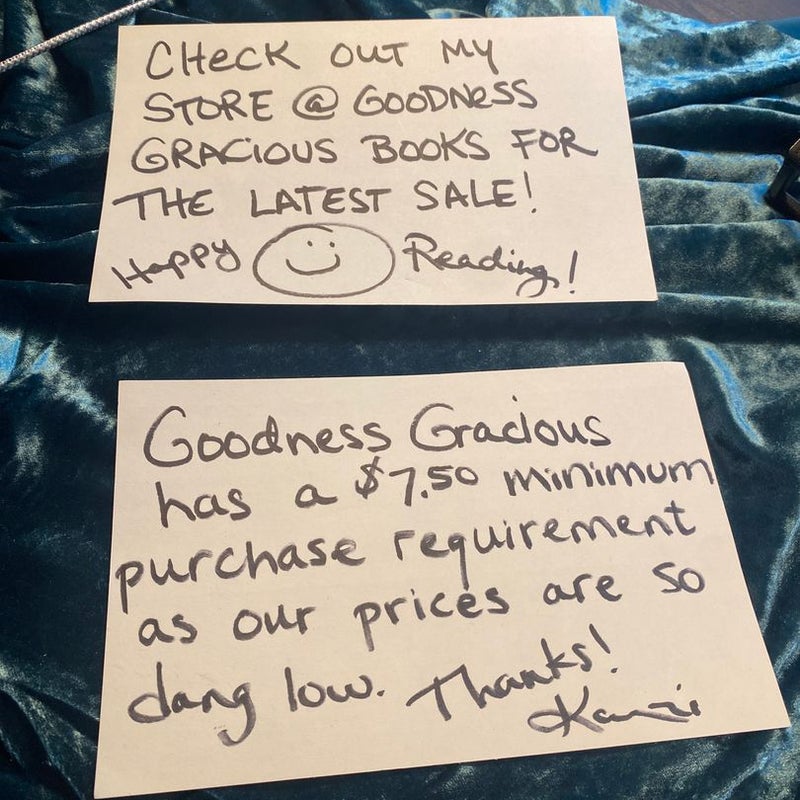 CHecK OUT MY
STORE @ GOODNeSS
GRACiOUS BOOKS FOR
THE LATEST SALE!
Happy Reading!
Goodness Gracious
has a $7.50 minimum
purchase requirement
as our prices are so
dang low. Thanks!
Kanzi